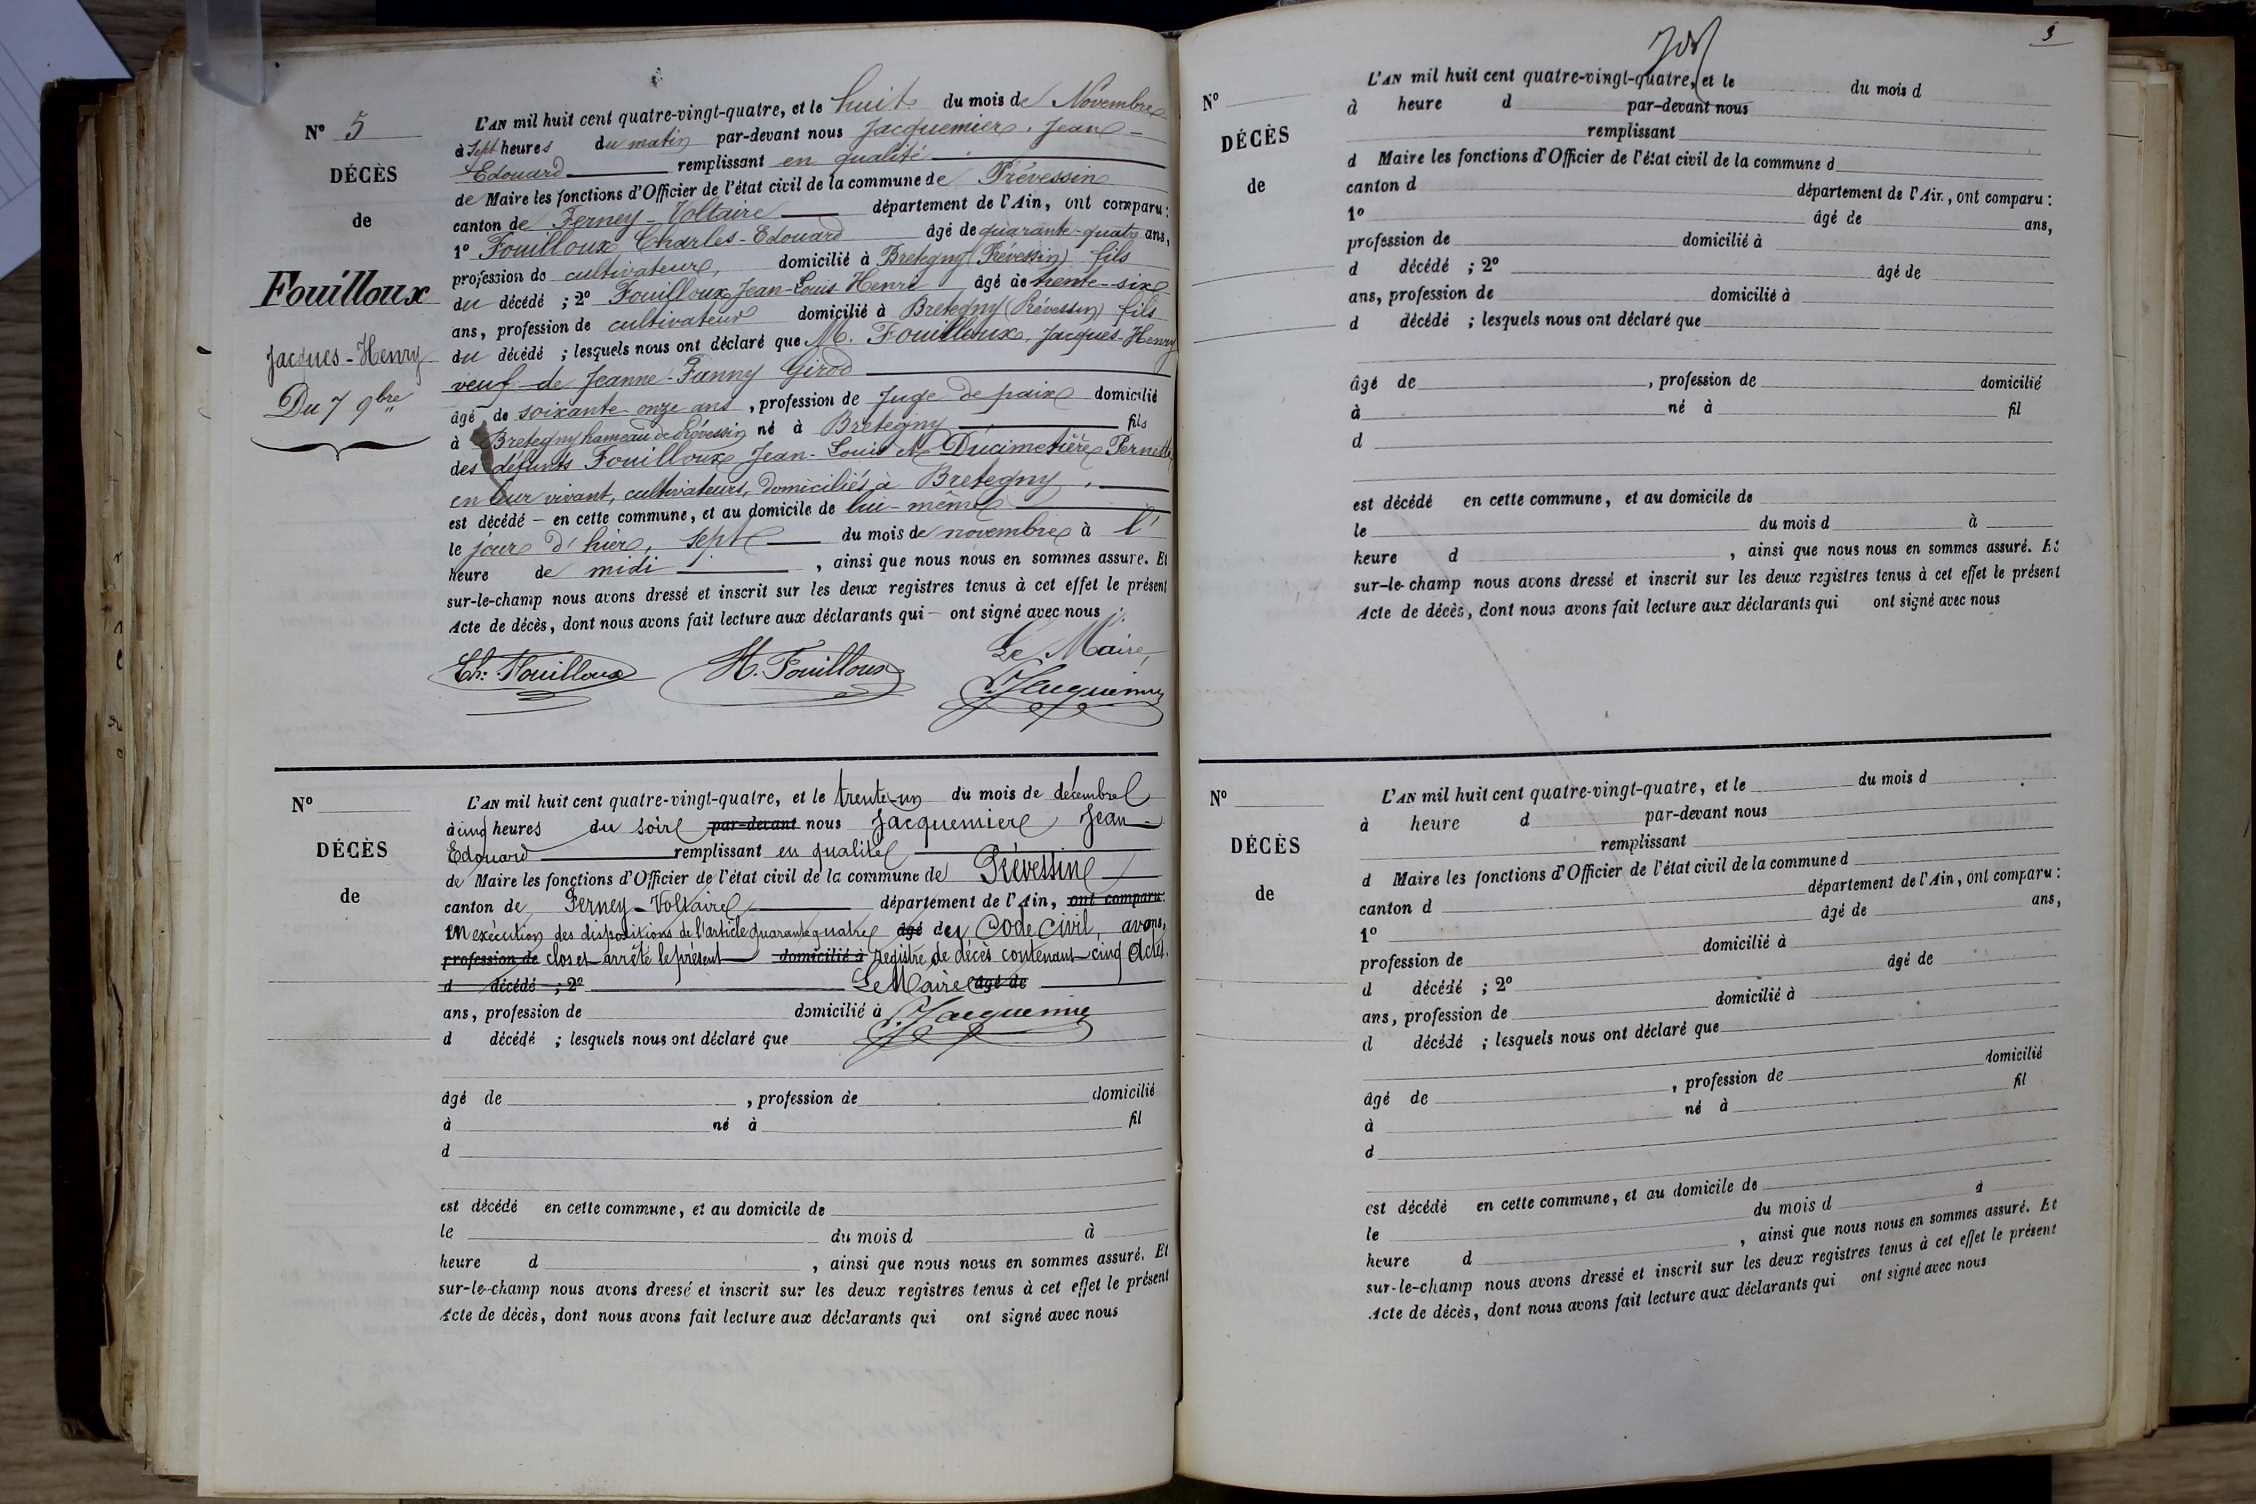 N° 5
DÉCÈS
de
Fouilloux
Jacques-Henry
Du 7 9bre
L'AN mil huit cent quatre-vingt-quatre, et le huit du mois de Novembre
à Sept heures du matin par-devant nous Jacquemier, Jean-
Edouard remplissant en qualité
de Maire les fonctions d'Officier de l'état civil de la commune de Prévessin
canton de Ferney-Voltaire département de l'Ain, ont comparu :
1° Fouilloux Charles-Edouard âgé de quarante-quatre ans,
profession de cultivateur, domicilié à Bretegny (Prévessin) fils
du décédé ; 2° Fouilloux Jean-Louis Henri âgé de trente-six
ans, profession de cultivateur domicilié à Bretegny (Prévessin) fils
du décédé ; lesquels nous ont déclaré que M. Fouilloux, Jacques-Henry
veuf de Jeanne-Fanny Girod
âgé de soixante-onze ans, profession de Juge de paix domicilié
à Bretegny hameau de Prévessin né à Bretegny fils
des défunts Fouilloux Jean-Louis et Ducimetière Pernette
en leur vivant, cultivateurs, domiciliés à Bretegny,
est décédé - en cette commune, et au domicile de lui-même
le jour d'hier, sept du mois de novembre à l'
heure de midi, ainsi que nous nous en sommes assuré. Et
sur-le-champ nous avons dressé et inscrit sur les deux registres tenus à cet effet le présent
Acte de décès, dont nous avons fait lecture aux déclarants qui - ont signé avec nous
Le Maire,
Ch: Fouilloux H. Fouilloux J. Jacquemier
N°
DÉCÈS
de
L'AN mil huit cent quatre-vingt-quatre, et le trente-un du mois de décembre
à cinq heures du soir par-devant nous Jacquemier Jean-
Edouard remplissant en qualité
de Maire les fonctions d'Officier de l'état civil de la commune de Prévessin
canton de Ferney-Voltaire département de l'Ain, ont comparu:
en exécution des dispositions de l'article quarante quatre âgé du Code civil, avons,
profession de clos et arrêté le présent domicilié à registre de décès contenant cinq actes.
d décédé ; 2° Le Maire âgé de
ans, profession de domicilié à J. Jacquemier
d décédé ; lesquels nous ont déclaré que
âgé de , profession de domicilié
à né à fil
d
est décédé en cette commune, et au domicile de
le du mois d à
heure d , ainsi que nous nous en sommes assuré. Et
sur-le-champ nous avons dressé et inscrit sur les deux registres tenus à cet effet le présent
Acte de décès, dont nous avons fait lecture aux déclarants qui ont signé avec nous
3
N°
DÉCÈS
de
L'AN mil huit cent quatre-vingt-quatre, et le du mois d
à heure d par-devant nous
remplissant
d Maire les fonctions d'Officier de l'état civil de la commune d
canton d département de l'Ain, ont comparu :
1° âgé de ans,
profession de domicilié à
d décédé ; 2° âgé de
ans, profession de domicilié à
d décédé ; lesquels nous ont déclaré que
âgé de , profession de domicilié
à né à fil
d
est décédé en cette commune, et au domicile de
le du mois d à
heure d , ainsi que nous nous en sommes assuré. Et
sur-le-champ nous avons dressé et inscrit sur les deux registres tenus à cet effet le présent
Acte de décès, dont nous avons fait lecture aux déclarants qui ont signé avec nous
N°
DÉCÈS
de
L'AN mil huit cent quatre-vingt-quatre, et le du mois d
à heure d par-devant nous
remplissant
d Maire les fonctions d'Officier de l'état civil de la commune d
canton d département de l'Ain, ont comparu :
1° âgé de ans,
profession de domicilié à
d décédé ; 2° âgé de
ans, profession de domicilié à
d décédé ; lesquels nous ont déclaré que
âgé de , profession de domicilié
à né à fil
d
est décédé en cette commune, et au domicile de
le du mois d à
heure d , ainsi que nous nous en sommes assuré. Et
sur-le-champ nous avons dressé et inscrit sur les deux registres tenus à cet effet le présent
Acte de décès, dont nous avons fait lecture aux déclarants qui ont signé avec nous